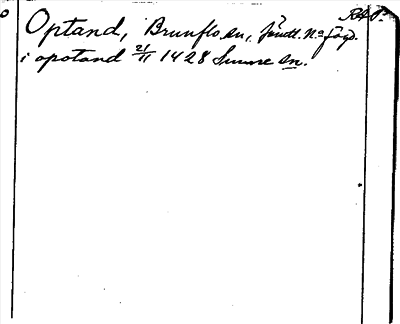 RAp.
Optand, Brunflo sn, Jämtl. N. fögd.
i opotand 21/11 1428 Sunne sn.